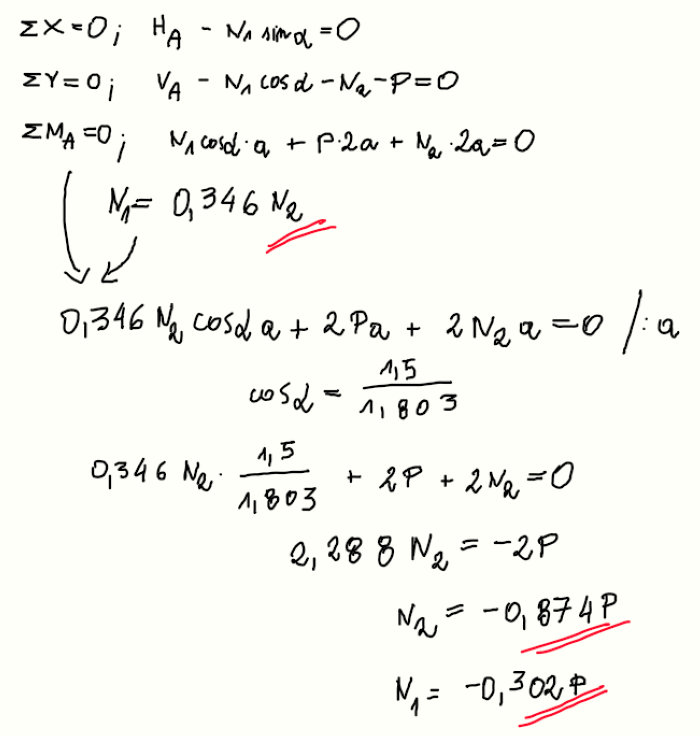 ΣX=0; H_A - N_1 sinα=0
ΣY=0; V_A - N_1 cosα - N_2 - P=0
ΣM_A=0; N_1 cosα·a + P·2a + N_2·2a=0
N_1= 0,346 N_2
0,346 N_2 cosα a + 2Pa + 2N_2 a =0 /:a
cosα = 1,5/1,803
0,346 N_2 · 1,5/1,803 + 2P + 2N_2 =0
2,288 N_2 = -2P
N_2 = -0,874P
N_1 = -0,302P